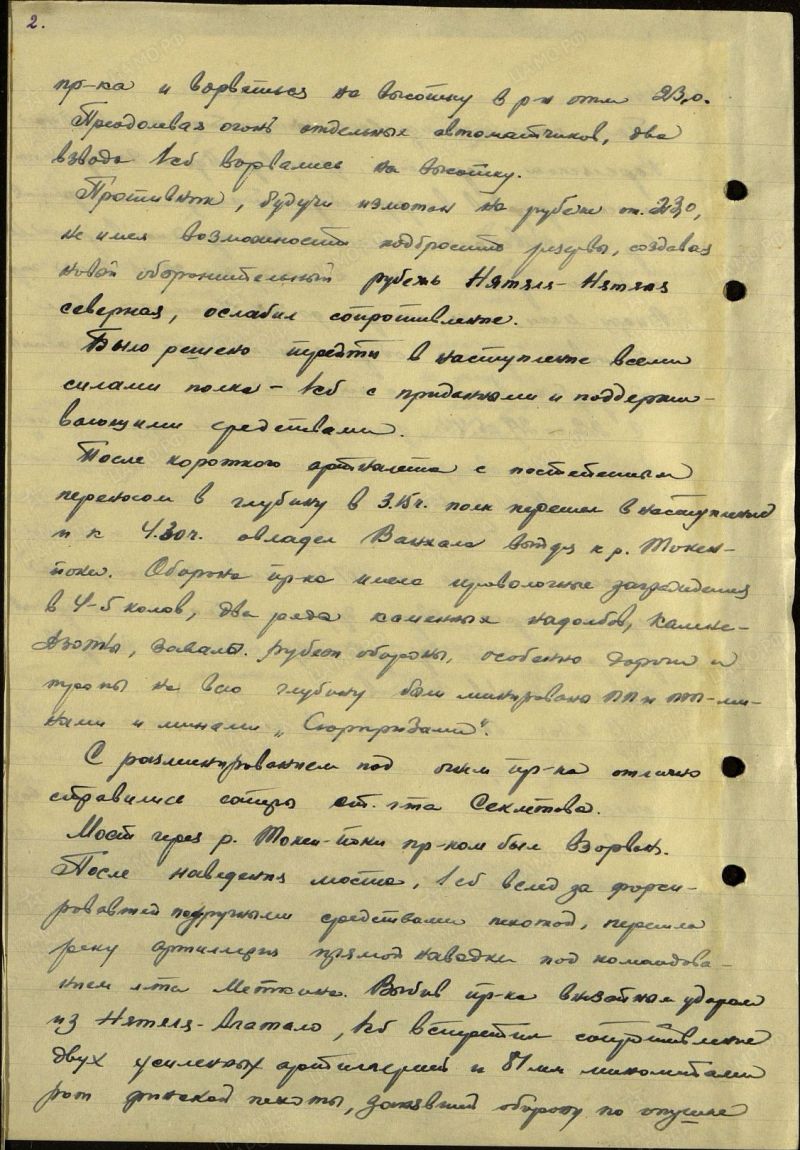 2.
пр-ка и ворваться на высотку в р-н отм 23,0.
Преодолевая огонь отдельных автоматчиков, два
взвода 1сб ворвались на высотку.
Противник, будучи измотан на рубеже от. 23,0,
не имея возможности подбросить резервы, создавая
новый оборонительный рубеж Нятеля-Нятеля
северная, ослабил сопротивление.
Было решено перейти в наступление всеми
силами полка - 1сб с приданными и поддержи-
вающими средствами.
После короткого артналета с постепенным
переносом в глубину в 3.15ч. полк перешел в наступление
и к 4.30ч. овладел выйдя к р. Токсн-
йоки. Оборона пр-ка имела проволочные заграждения
в 4-5 колов, два ряда каменных надолбов, камне-
, завалы. Рубеж обороны, особенно дороги и
тропы на всю глубину были минированы ПП и ПТ-ми-
нами и минами „Сюрпризами".
С разминированием под огнем пр-ка отлично
справились саперы ст. л-та Секлетова.
Мост через р. Токсн-йоки пр-ком был взорван.
После наведения моста, 1сб вслед за форси-
ровавшей подручными средствами пехотой, перешла
реку артиллерия прямой наводки под командова-
нием л-та Меткина. Выбив пр-ка внезапным ударом
из Нятеля-Алатало, 1сб встретил сопротивление
двух усиленных артиллерией и 81мм минометами
рот финской пехоты, занявшей оборону по опушке